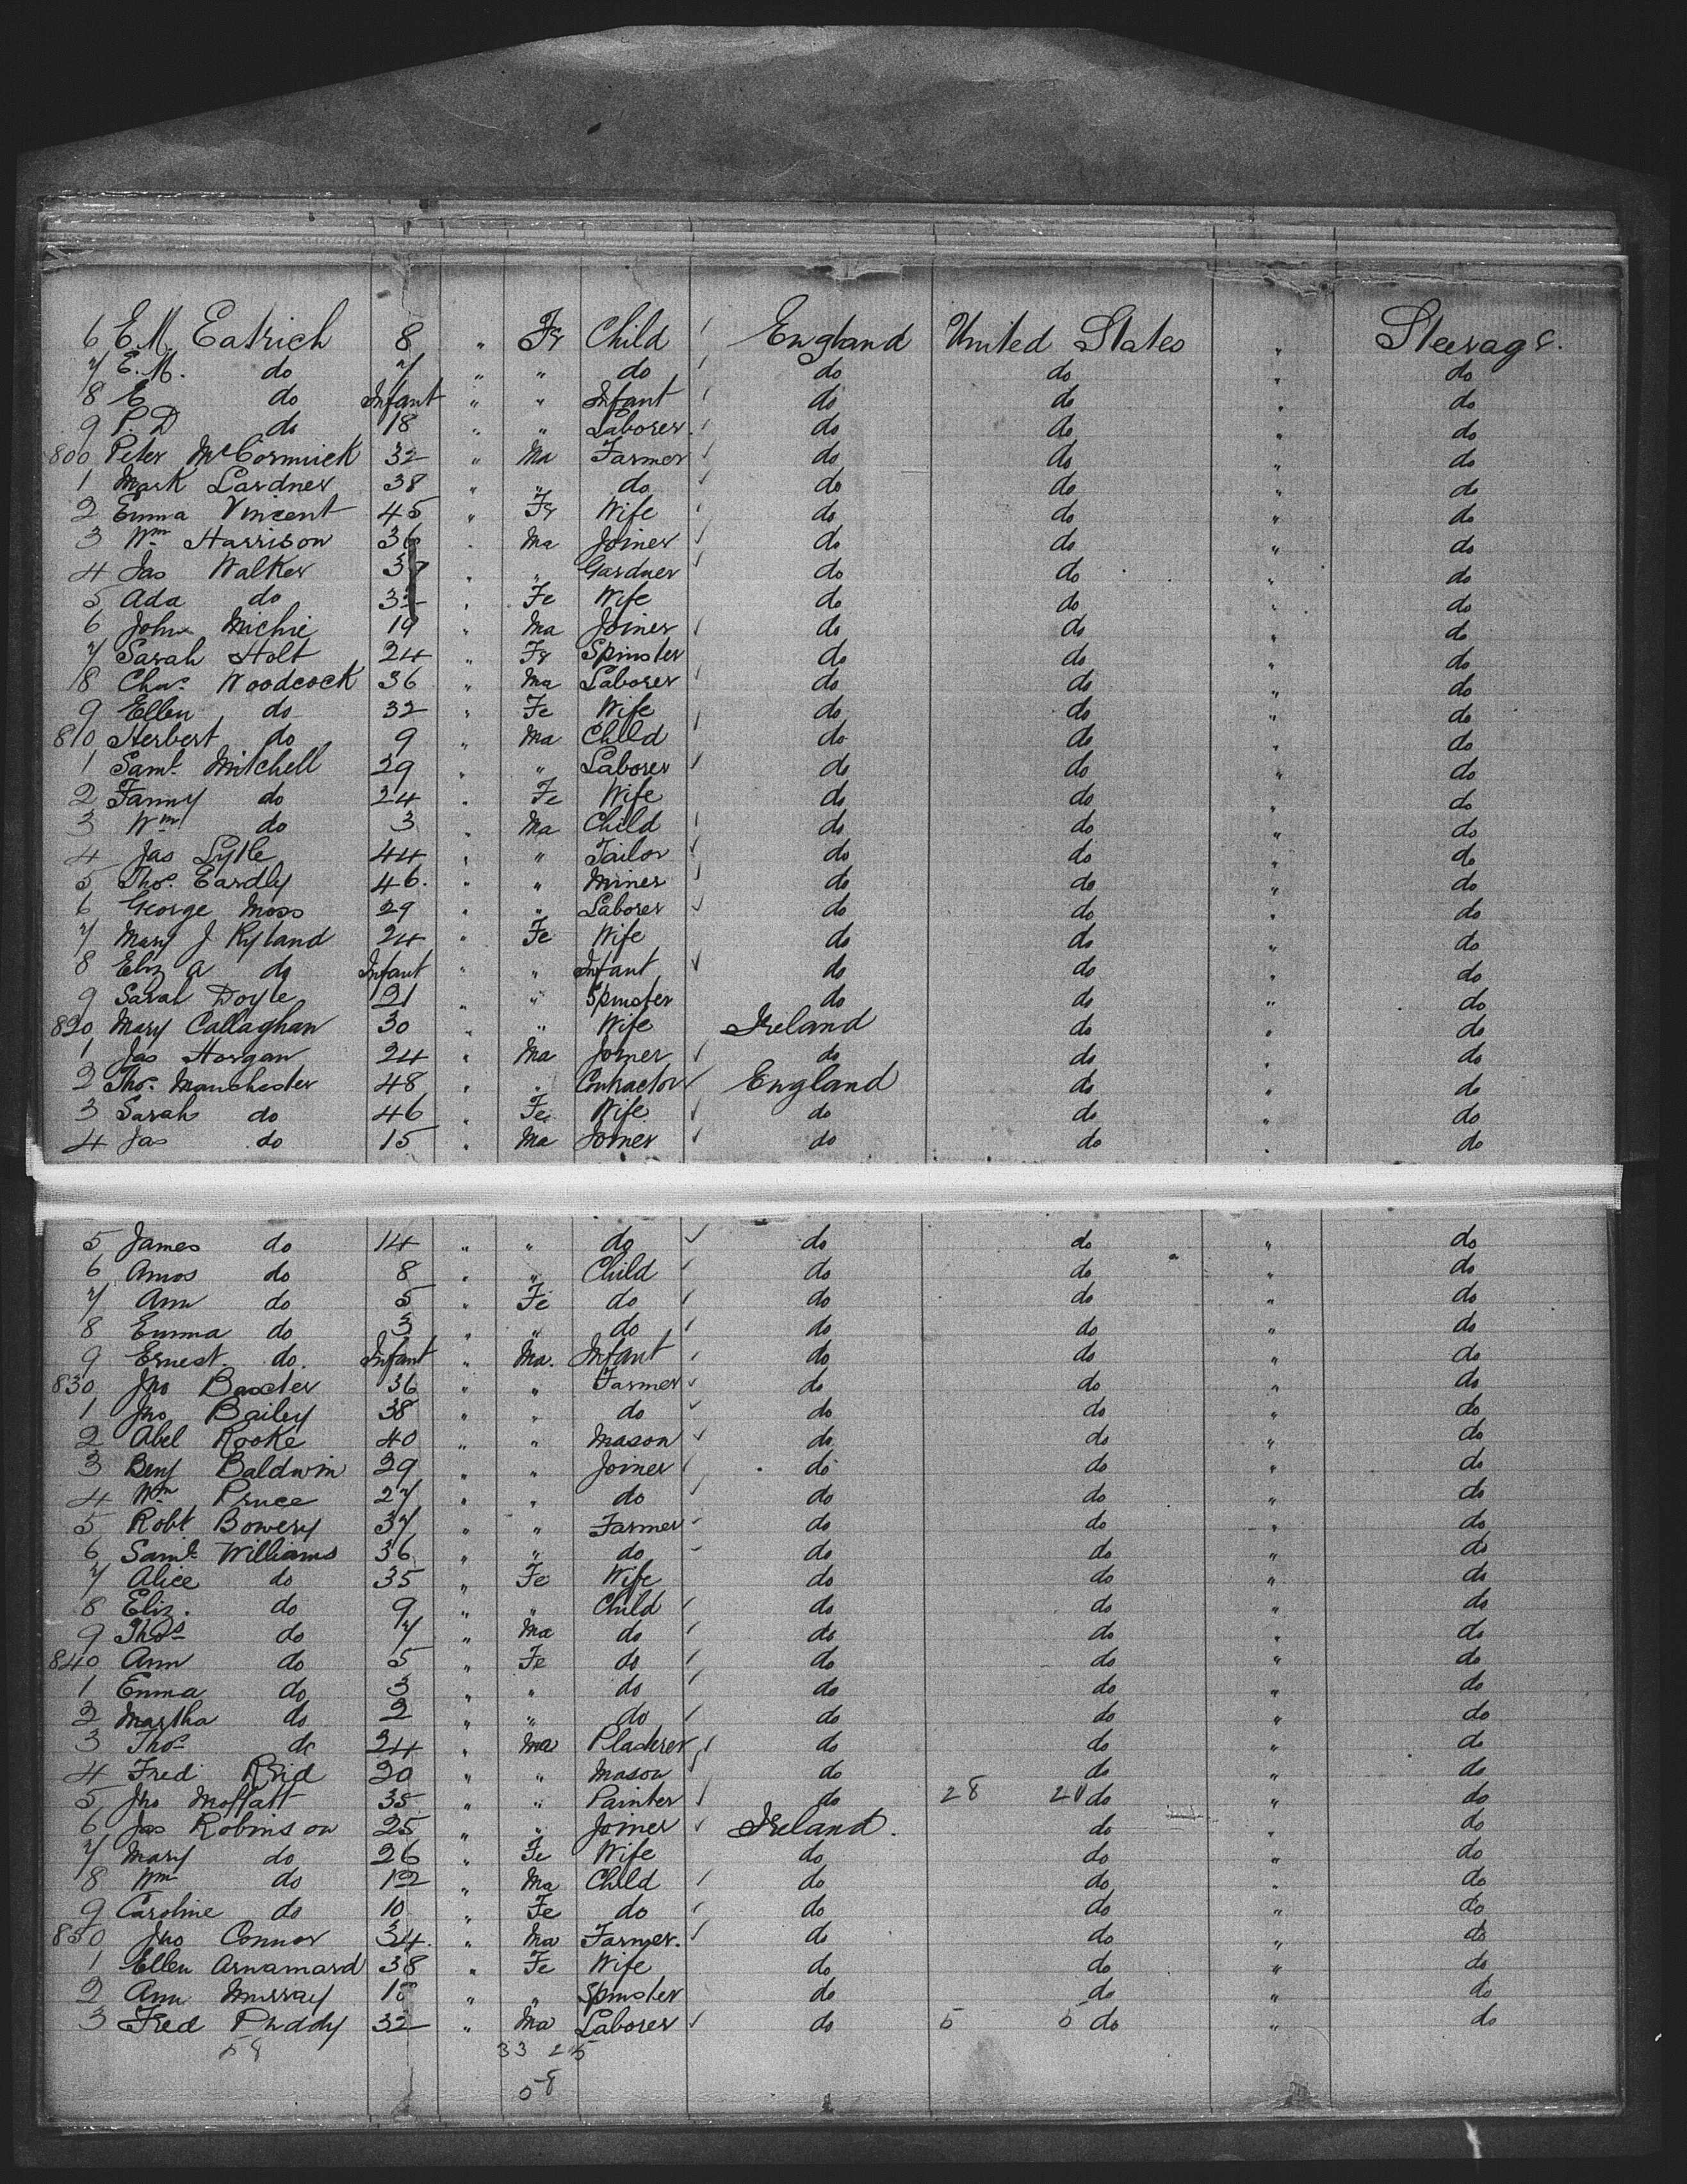 6 E.M. Eatrich 8 " Fe Child England United States " Steerage.
7 E.M. do 7 " " do do do " do
8 E do Infant " " Infant do do " do
9 P.D do 18 " " Laborer do do " do
800 Peter McCormick 32 " Ma Farmer do do " do
1 Mark Lardner 38 " " do do do " do
2 Emma Vincent 45 " Fe Wife do do " do
3 Wm Harrison 36 " Ma Joiner do do " do
4 Jas Walker 37 " " Gardner do do " do
5 Ada do " Fe Wife do do " do
6 John Michie 19 " Ma Joiner do do " do
7 Sarah Holt 24 " Fe Spinster do do " do
8 Chas. Woodcock 36 " Ma Laborer do do " do
9 Ellen do 32 " Fe Wife do do " do
810 Herbert do 9 " Ma Child do do " do
1 Saml. Mitchell 29 " " Laborer do do " do
2 Fanny do 24 " Fe Wife do do " do
3 Wm do 3 " Ma Child do do " do
4 Jas Lytle 44 " " Tailor do do " do
5 Thos. Eardly 46. " " Miner do do " do
6 George Moss 29 " " Laborer do do " do
7 Mary J Ryland 24 " Fe Wife do do " do
8 Eliz A do Infant " " Infant do do " do
9 Sarah Doyle 21 " " Spinster do do " do
820 Mary Callaghan 30 " " Wife Ireland do " do
1 Jas Horgan 24 " Ma Joiner do do " do
2 Thos. Manchester 48 " " Contractor England do " do
3 Sarah do 46 " Fe Wife do do " do
4 Jas do 15 " Ma Joiner do do " do
5 James do 14 " " do do do " do
6 Amos do 8 " " Child do do " do
7 Ann do 5 " Fe do do do " do
8 Emma do 3 " " do do do " do
9 Ernest do. Infant " Ma. Infant do do " do
830 Jno Baxter 36 " " Farmer do do " do
1 Jno Bailey 38 " " do do do " do
2 Abel Rooke 40 " " Mason do do " do
3 Benj Baldwin 29 " " Joiner do do " do
4 Wm Pruce 27 " " do do do " do
5 Robt Bowery 37 " " Farmer do do " do
6 Saml. Williams 36 " " do do do " do
7 Alice do 35 " Fe Wife do do " do
8 Eliz. do 9 " " Child do do " do
9 Thos do 7 " Ma do do do " do
840 Ann do 5 " Fe do do do " do
1 Emma do 3 " " do do do " do
2 Martha do 2 " " do do do " do
3 Thos do 24 " Ma Plasterer do do " do
4 Fred Reid 20 " " Mason do do " do
5 Jno Moffatt 35 " " Painter do 28 do " do
6 Jas Robinson 25 " " Joiner Ireland. do " do
7 Mary do 26 " Fe Wife do do " do
8 Wm do 12 " Ma Child do do " do
9 Caroline do 10 " Fe do do do " do
850 Jno Connor 34. " Ma Farmer. do do " do
1 Ellen Arnamard 38 " Fe Wife do do " do
2 Ann Murray " " Spinster do do " do
3 Fred Puddy 32 " Ma Laborer do 5 5 do " do
58 33 25
58